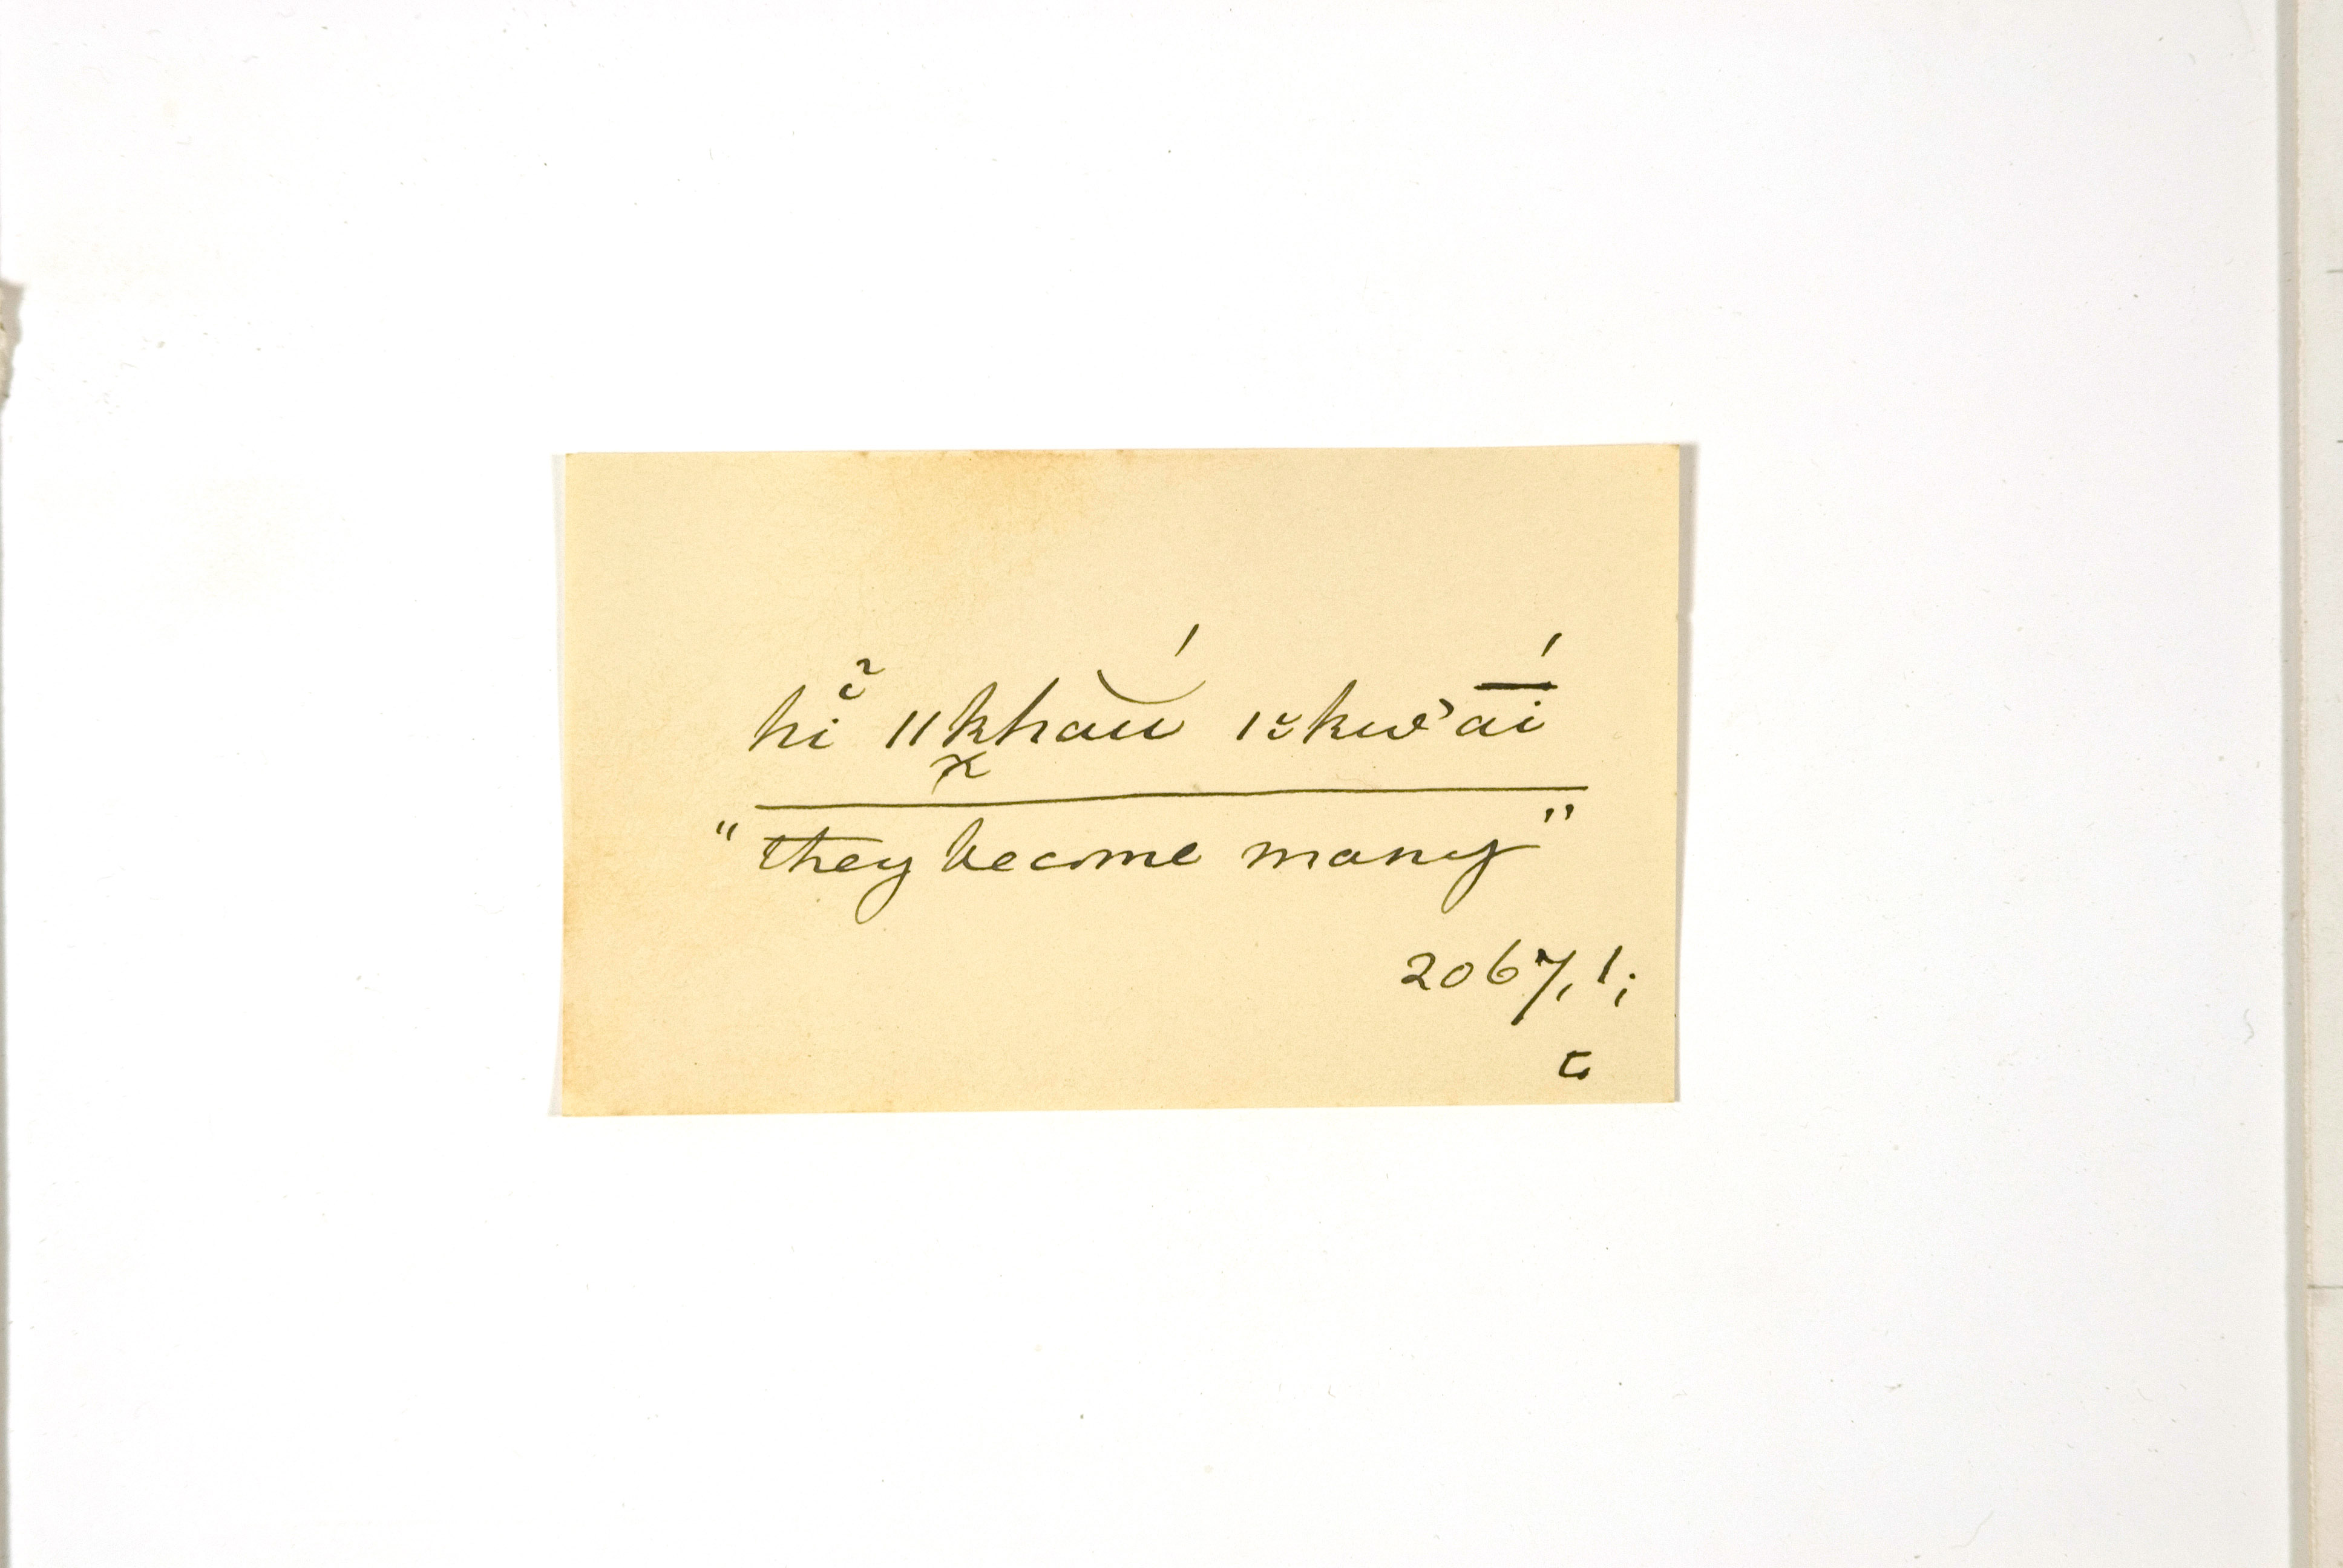 hĭ̃ ǁk͓haú̮ ǀ૨kwʾā́i
"they become many"
2067, 1;